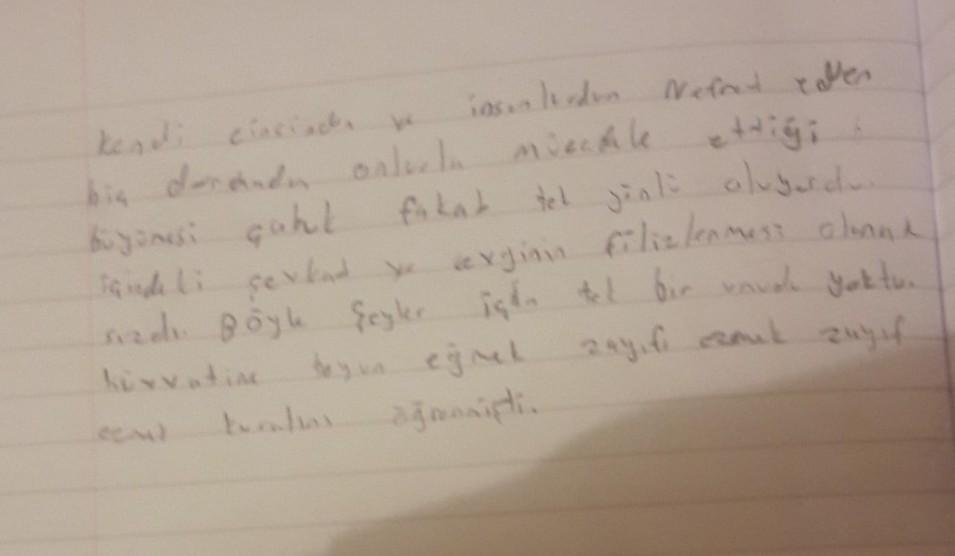 kendi cinsinden ve insanlardan Nefret eden
bir durumda onlarla mücadele ettiği
büyümesi çabuk fakat tek yönlü oluyordu.
içindeki şevkat ve sevginin filizlenmesi olanak
sızdı. Böyle şeyler için tek bir umudu yoktu.
kuvvetine boyun eğmek zayıfı ezmek zayıf
ezme kuralını öğrenmişti.